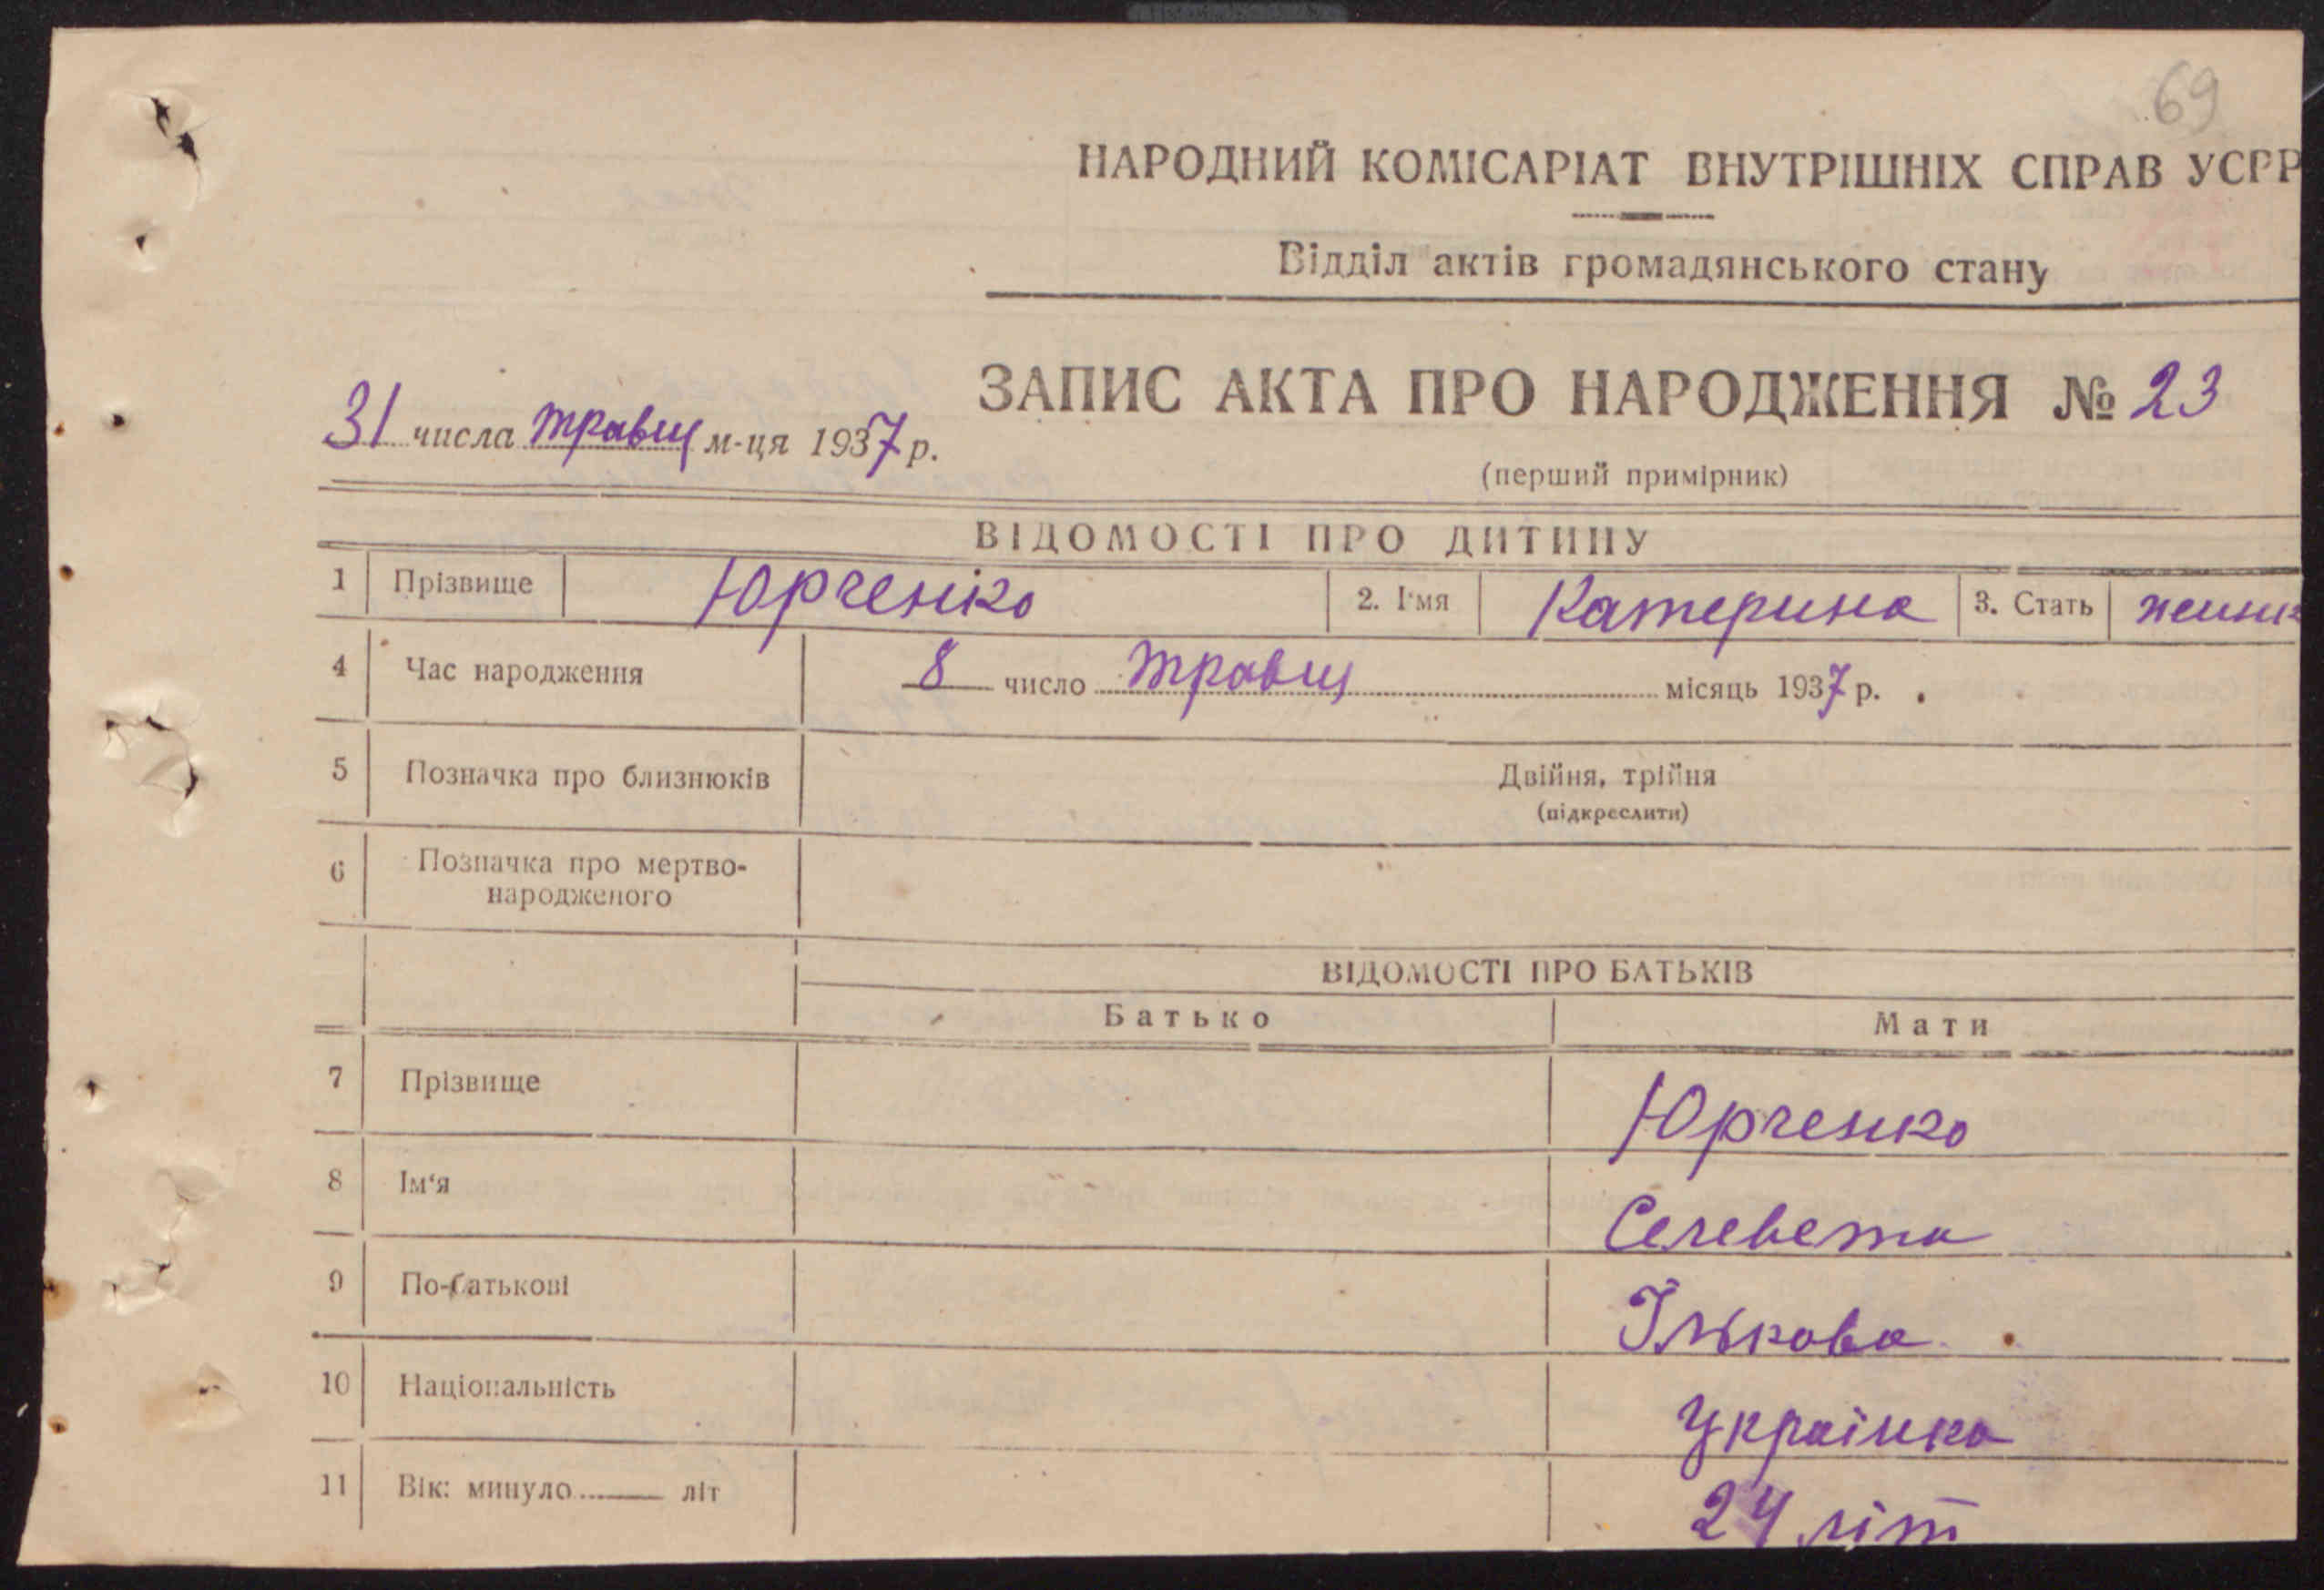 69
НАРОДНИЙ КОМІСАРІАТ ВНУТРІШНІХ СПРАВ УСРР
Відділ актів громадянського стану
ЗАПИС АКТА ПРО НАРОДЖЕННЯ № 23
31 числа травця м-ця 1937 р.
(перший примірник)
ВІДОМОСТІ ПРО ДИТИНУ
1 Прізвище Юрченко 2. І'мя Катерина 3. Стать
4 Час народження 8 число травця місяць 1937 р.
5 Позначка про близнюків Двійня, трійня
(підкреслити)
6 Позначка про мертво-
народженого
ВІДОМОСТІ ПРО БАТЬКІВ
Батько Мати
7 Прізвище Юрченко
8 Ім'я Селевета
9 По-батькові Ількова
10 Національність Українка
11 Вік: минуло літ 24 літ